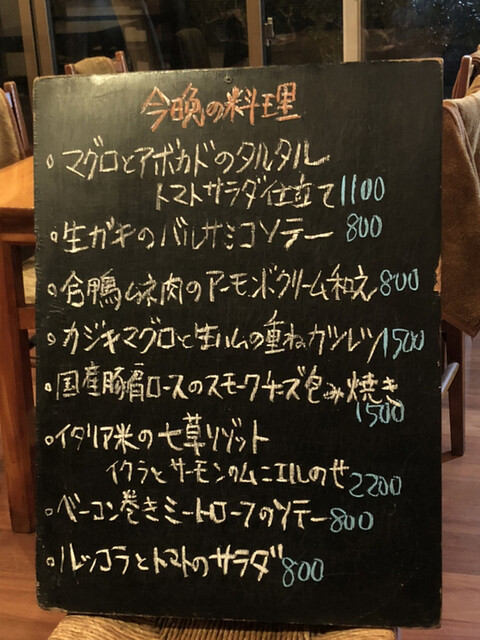 今晩の料理
・マグロとアボカドのタルタル
トマトサラダ仕立て 1100
・生ガキのバルサミコソテー 800
・合鴨ムネ肉のアーモンドクリーム和え 800
・カジキマグロと生ハムの重ねカツレツ 1500
・国産豚肩ロースのスモークチーズ包み焼き
1500
・イタリア米の七草リゾット
イクラとサーモンのムニエルのせ 2200
・ベーコン巻きミートローフのソテー 800
・ルッコラとトマトのサラダ 800